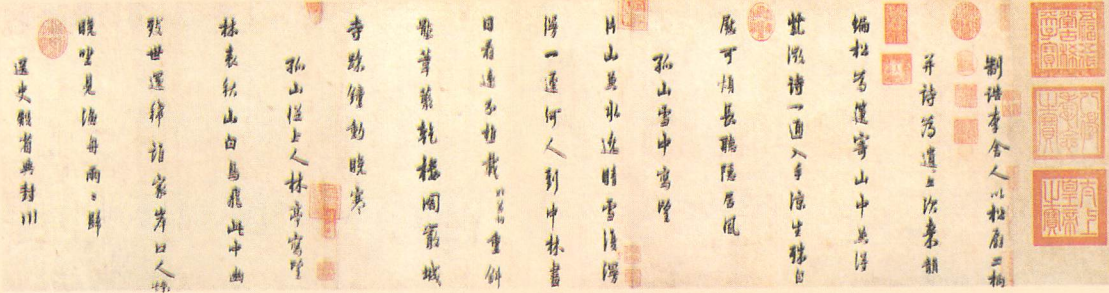 五福五代堂古稀天子寶
八徵耄念之寶
太上皇帝之寶
制誥李舍人以松扇二柄
并詩為遺亦次來韻
編松為箑寄山中兼得
紫微詩一通入手涼生殊自
慰可煩長聽隱居風
孤山雪中寫望
片山兼水遶晴雪復漫
漫一逕何人到中林盡
日看遠分樵載重斜
壓葦叢乾樓閣嚴城
寺疎鐘動晚寒
孤山從上人林亭寫望
林表秋山白鳥飛此中幽
致世還稀誰家岸口人煙
晚坐見漁舟兩々歸
送史殿省典封川